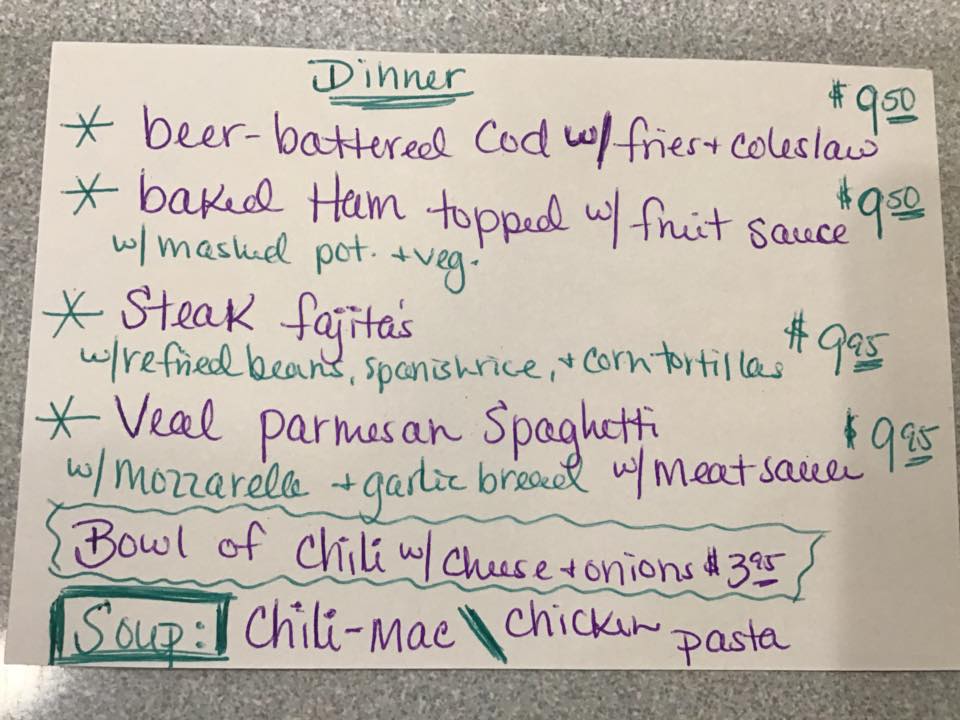 Dinner
* beer-battered Cod w/ fries + coleslaw $9.50
* baked Ham topped w/ fruit sauce $9.50
w/ mashed pot. + veg.
* Steak fajita's
w/ refried beans, spanish rice, + corn tortillas $9.95
* Veal parmesan Spaghetti $9.95
w/ mozzarella + garlic bread w/ meat sauce
Bowl of Chili w/ cheese + onions $3.95
Soup: Chili-Mac \ chicken pasta